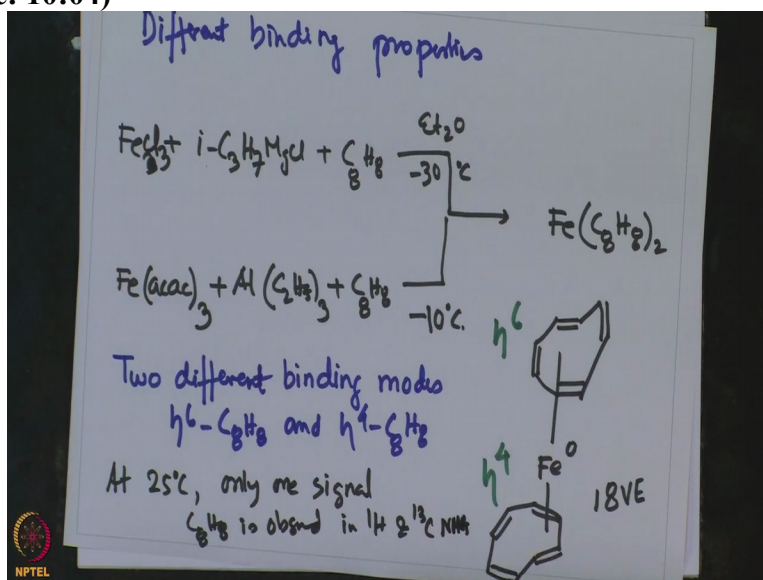 c. 10:04)
Different binding properties
FeCl3 + i-C3H7MgCl + C8H8
Et2O
-30 °C
Fe(C8H8)2
Fe(acac)3 + Al(C2H5)3 + C8H8
-10°C.
η6
Two different binding modes
η6-C8H8 and η4-C8H8
η4
Fe0
18VE
At 25°C, only one signal
C8H8 is obsned in 1H & 13C NMR
NPTEL